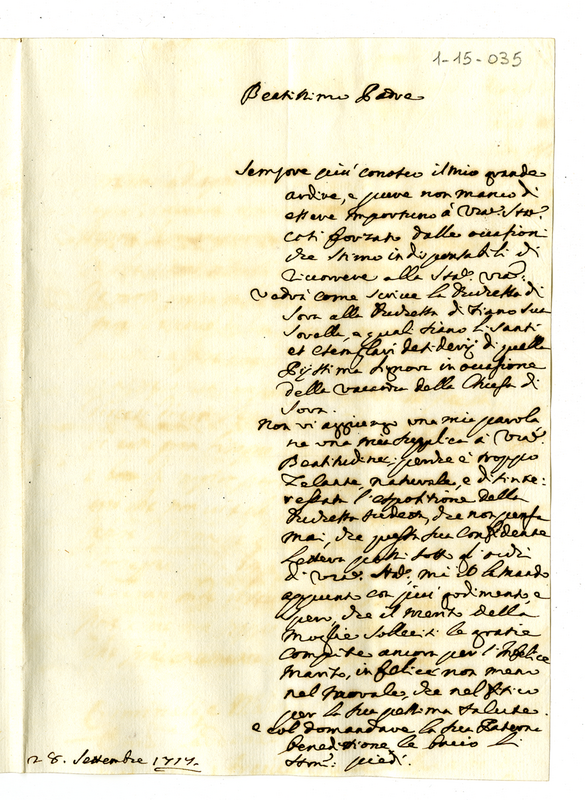 1-15-035
Beatissimo Padre
Sempre più conosco il mio grande
ardire, e pure non manco di
essere importuno à Vra. Stà.
così forzato dalle occasioni
che stimo indispensabili di
ricorrere alla Stà. Vra.
Vedrà come scrive la Duchessa di
Sora alla Duchessa di Fiano sua
sorella, e quali siano li santi
et esemplari desiderij di quella
Pijssima Signora in occasione
della vacanza della Chiesa di
Sora.
Non vi aggiungo una mia parola
ne una mia supplica à Vra.
Beatitudine, perche è troppo
zelante, naturale, e disinte:
ressata l'espositione della
Duchessa sudetta, che non pensa
mai, che questa sua confidente
lettera passi sotto gl'occhi
di Vra. Stà. mi lo mando
appunto con più godimento, e
spero, che il merito della
Moglie solleciti le gratie
compite ancora per l'infelice
marito, infelice non meno
nel morale, che nel fisico
per la sua pessima salute.
e col domandare la sua Paterna
benedittione le bacio li
SSmi. piedi.
28. Settembre 1717.